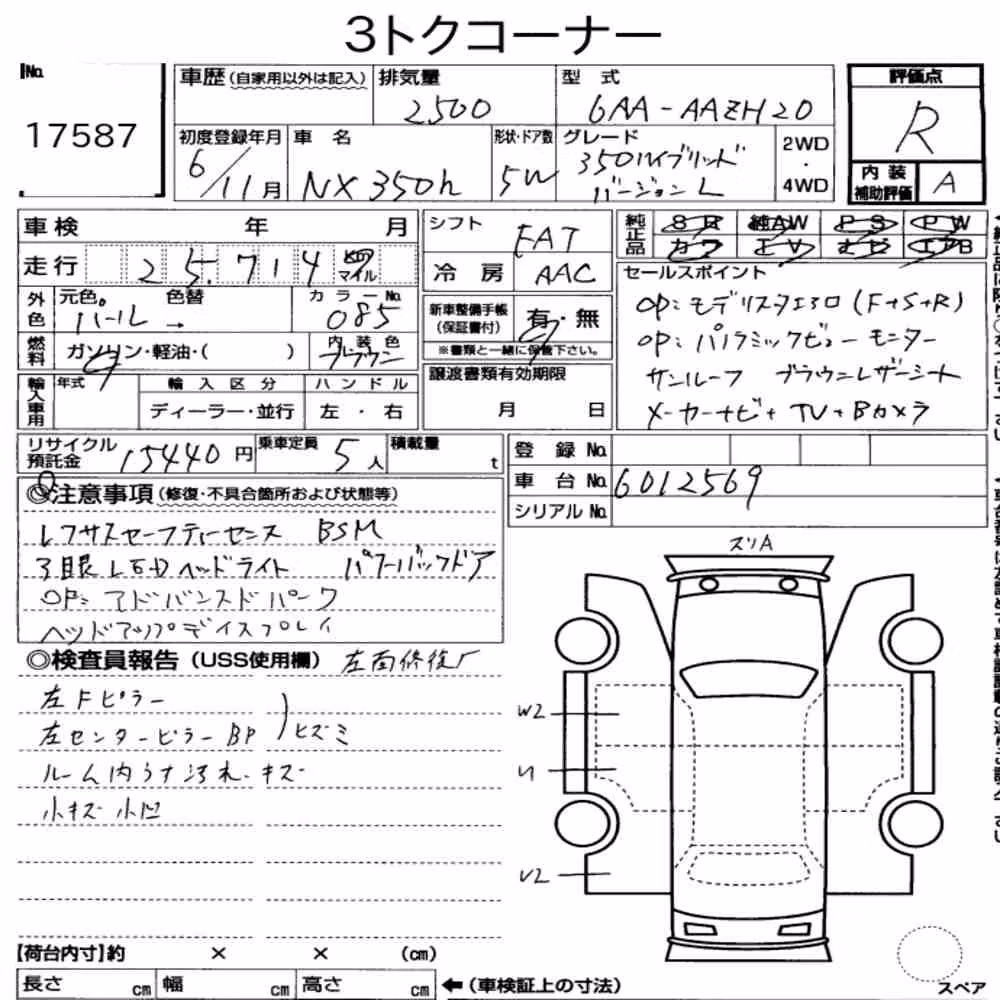 3トクコーナー
No.
17587
車歴 (自家用以外は記入)
排気量
2500
型式
6AA-AAZH20
評価点
R
内装補助評価 A
初度登録年月
6/11月
車名
NX350h
形状・ドア数
5W
グレード
350hハイブリッド
バージョンL
2WD
・
4WD
車検 年 月
走行 25,714 km マイル
シフト FAT
冷房 AAC
純正品 SR 純AW PS PW
カワ TV ナビ エアB
外色 元色。 色替 カラーNo.
パール → 085
燃料 ガソリン・軽油・( )
内装色 ブラウン
新車整備手帳(保証書付) 有・無
※書類と一緒に保管下さい。
セールスポイント
OP:モデリスタエアロ(F+S+R)
OP:パノラミックビューモニター
サンルーフ ブラウンレザーシート
メーカーナビ+TV+Bカメラ
輸入車用 年式 輸入区分 ハンドル
ディーラー・並行 左・右
譲渡書類有効期限
月 日
リサイクル預託金 15440円
乗車定員 5人
積載量 t
登録No.
車台No. 6012569
シリアルNo.
◎注意事項(修復・不具合箇所および状態等)
レクサスセーフティーセンス BSM
3眼LEDヘッドライト パワーバックドア
OP:アドバンスドパーク
ヘッドアップディスプレイ
◎検査員報告(USS使用欄) 左面修復歴
左Fピラー
左センターピラーBP ヒズミ
ルーム内うす汚れ・キズ
小キズ 小凹
スリA
W2
U1
U2
【荷台内寸】約 × × (cm)
長さ cm 幅 cm 高さ cm ←(車検証上の寸法)
スペア